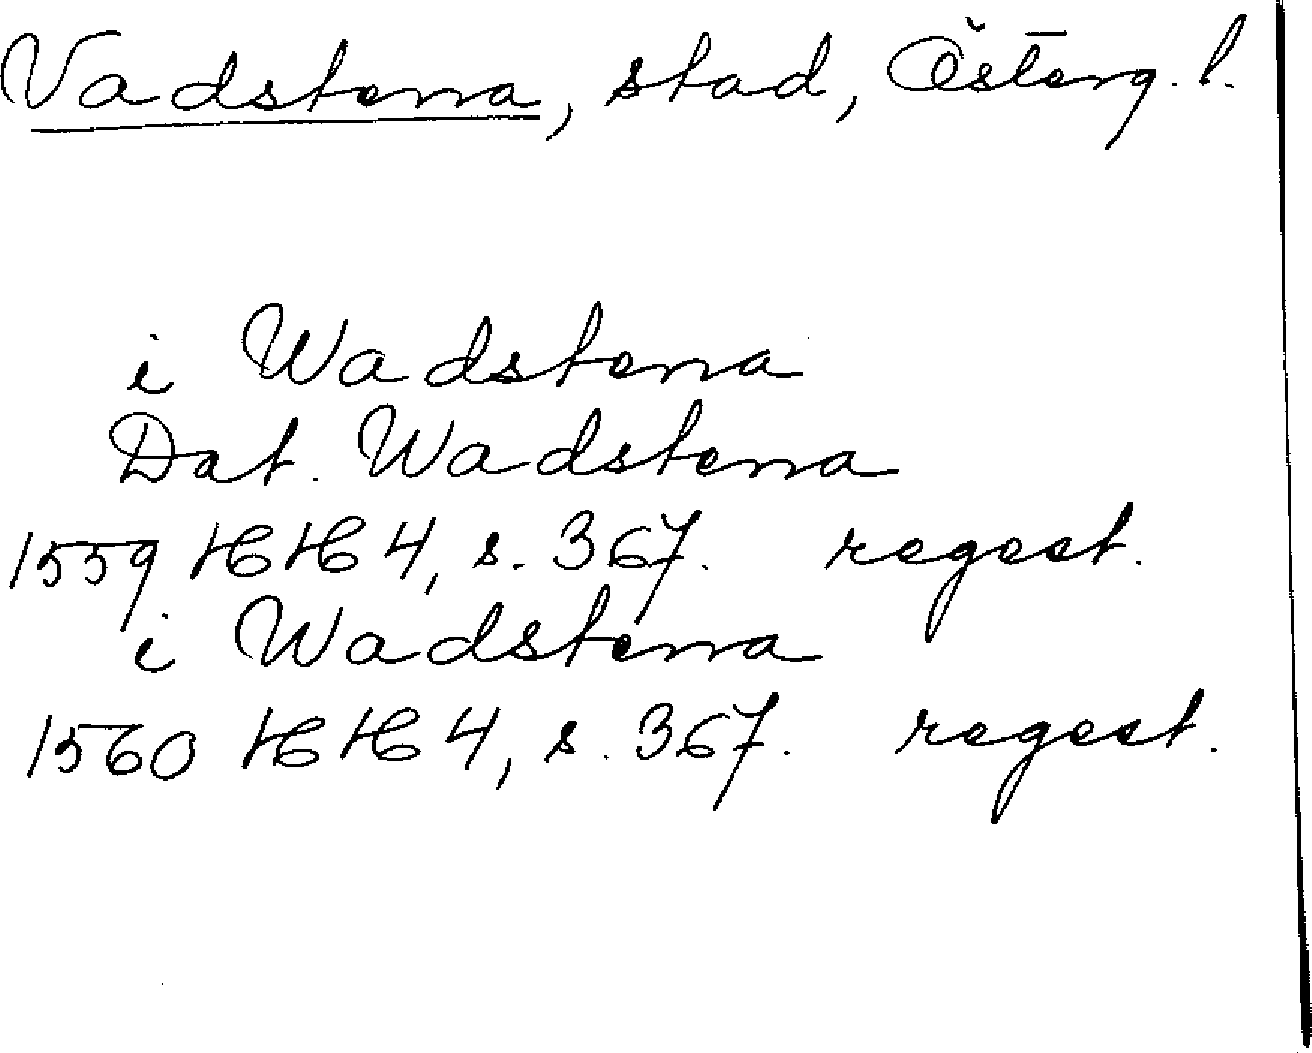 Vadstena, stad, Österg. l.
i Wadstena
Dat. Wadstena
1559 HH 4, s. 367. regest.
i Wadstena
1560 HH 4, s. 367. regest.